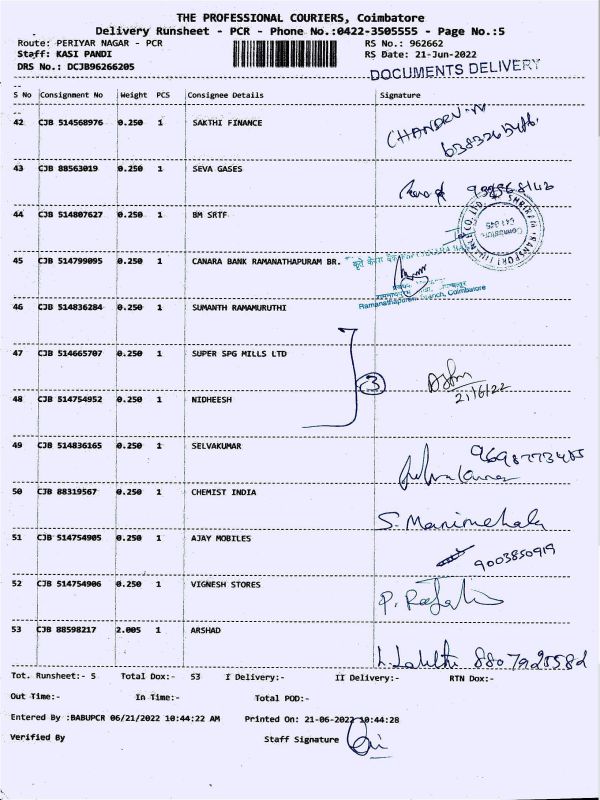 THE PROFESSIONAL COURIERS, Coimbatore
Delivery Runsheet - PCR - Phone No.:0422-3505555 - Page No.:5
Route: PERIYAR NAGAR - PCR RS No.: 962662
Staff: KASI PANDI RS Date: 21-Jun-2022
DRS No.: DCJB96266205
DOCUMENTS DELIVERY
S No Consignment No Weight PCS Consignee Details Signature
42 CJB 514568976 0.250 1 SAKTHI FINANCE
CHANDRU.N
43 CJB 88563019 0.250 1 SEVA GASES
44 CJB 514807627 0.250 1 BM SRTF
SHRIRAM TRANSPORT FINANCE CO. LTD.
Coimbatore
641 045
45 CJB 514799095 0.250 1 CANARA BANK RAMANATHAPURAM BR.
Ramanathapuram Branch, Coimbatore
46 CJB 514836284 0.250 1 SUMANTH RAMAMURUTHI
47 CJB 514665707 0.250 1 SUPER SPG MILLS LTD
3
21/6/22
48 CJB 514754952 0.250 1 NIDHEESH
49 CJB 514836165 0.250 1 SELVAKUMAR
50 CJB 88319567 0.250 1 CHEMIST INDIA
S. Manimehala
51 CJB 514754905 0.250 1 AJAY MOBILES
9003850919
52 CJB 514754906 0.250 1 VIGNESH STORES
53 CJB 88598217 2.005 1 ARSHAD
Tot. Runsheet:- 5 Total Dox:- 53 I Delivery:- II Delivery:- RTN Dox:-
Out Time:- In Time:- Total POD:-
Entered By :BABUPCR 06/21/2022 10:44:22 AM Printed On: 21-06-2022 10:44:28
Verified By Staff Signature